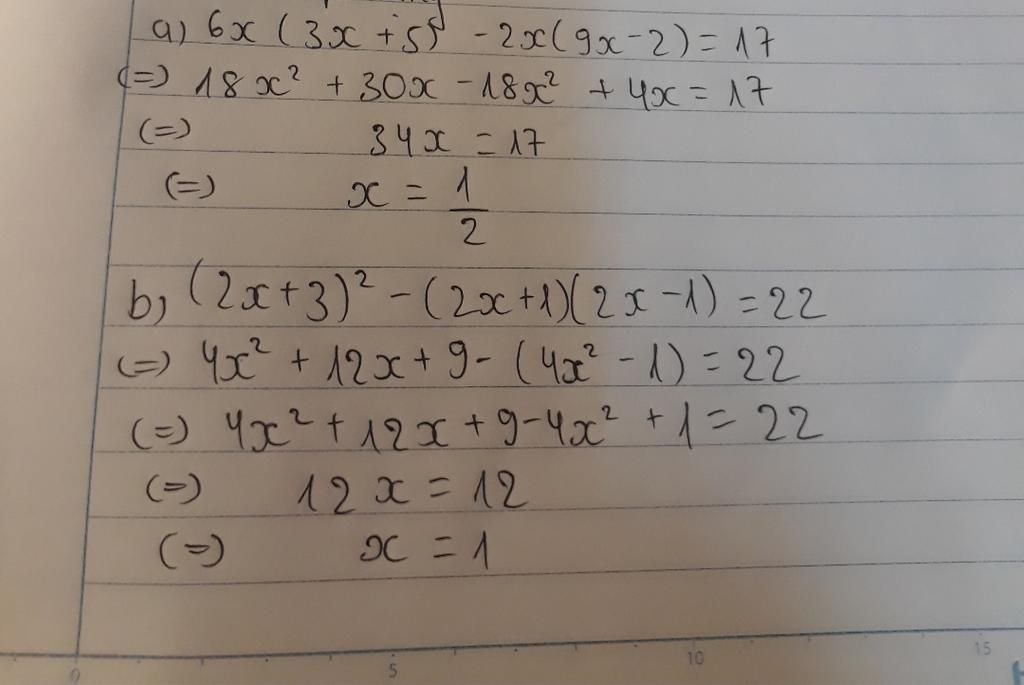 a) 6x (3x + 5) - 2x(9x - 2) = 17
(=) 18x² + 30x - 18x² + 4x = 17
(=) 34x = 17
(=) x = 1/2
b) (2x+3)² - (2x+1)(2x-1) = 22
(=) 4x² + 12x + 9 - (4x² - 1) = 22
(=) 4x² + 12x + 9 - 4x² + 1 = 22
(=) 12x = 12
(=) x = 1
0 5 10 15